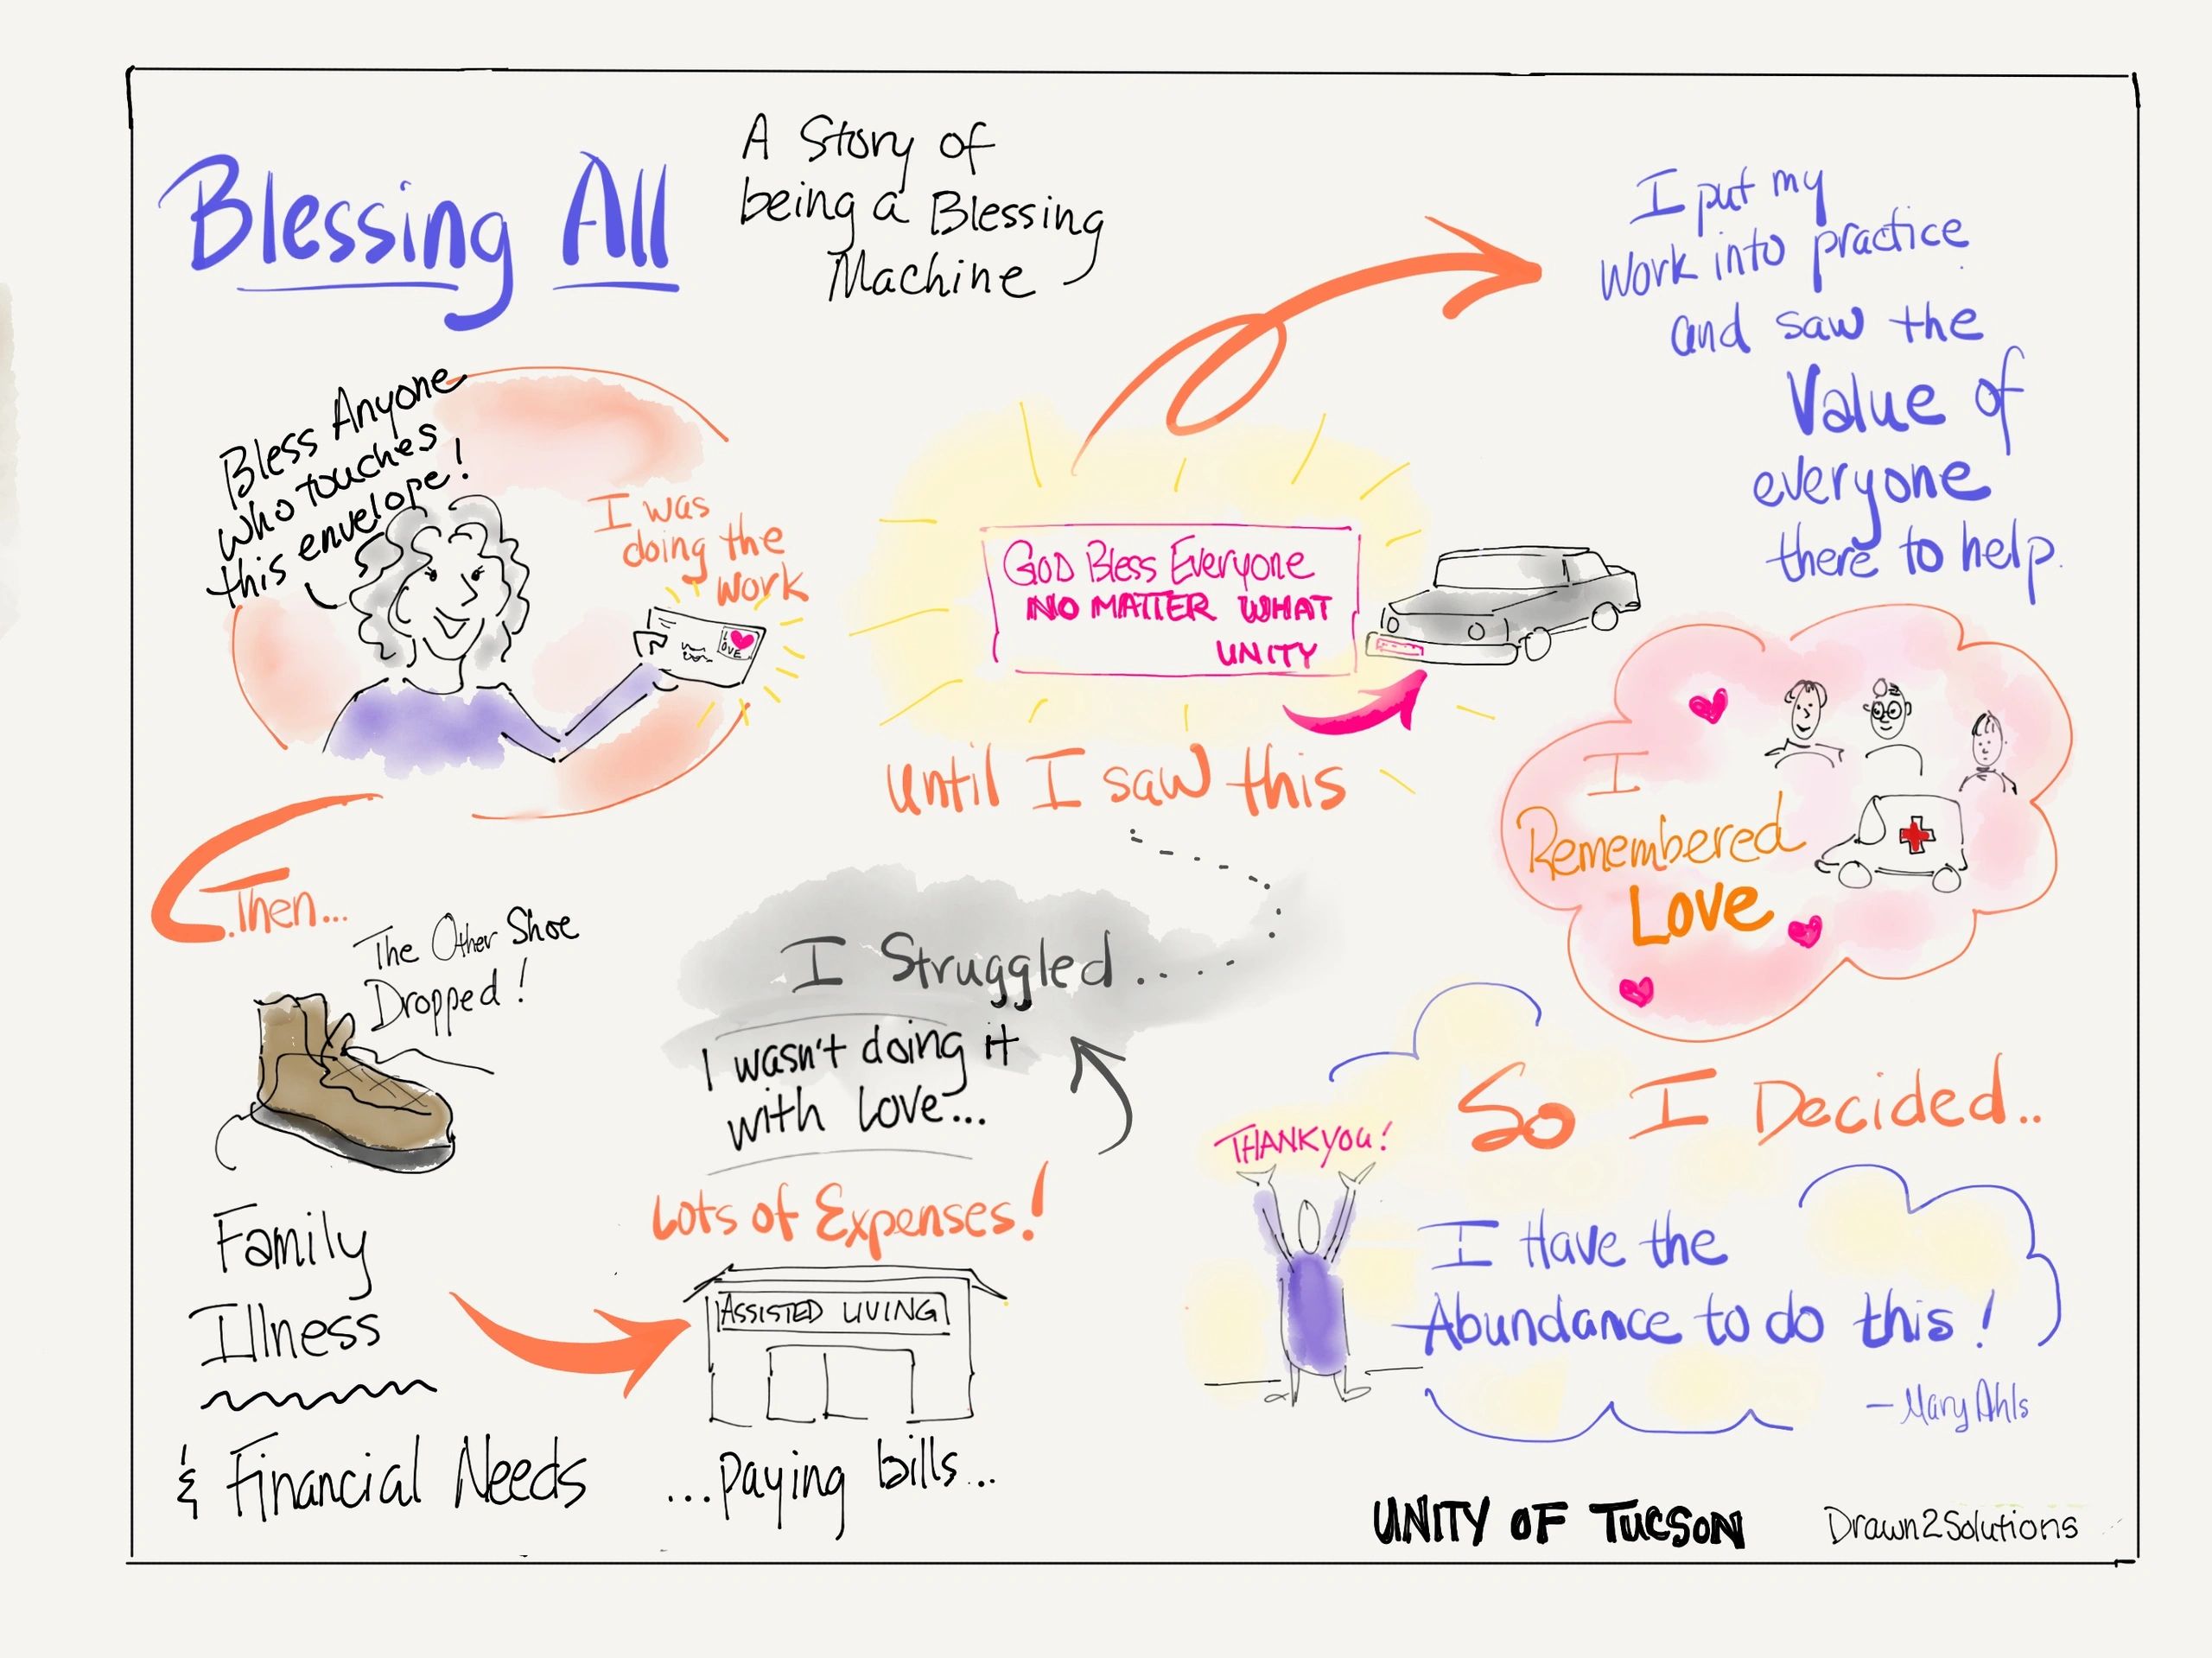 Blessing All
A Story of
being a Blessing
Machine
Bless Anyone
who touches
this envelope!
I was
doing the
work
LOVE
Then...
The Other Shoe
Dropped!
Family
Illness
& Financial Needs
Lots of Expenses!
ASSISTED LIVING
...paying bills...
I wasn't doing it
with love...
I Struggled....
until I saw this
GOD Bless Everyone
NO MATTER WHAT
UNITY
I put my
work into practice
and saw the
Value of
everyone
there to help.
I
Remembered
Love
So I Decided..
THANK YOU!
I Have the
Abundance to do this!
- Mary Ahls
UNITY OF TUCSON
Drawn2Solutions